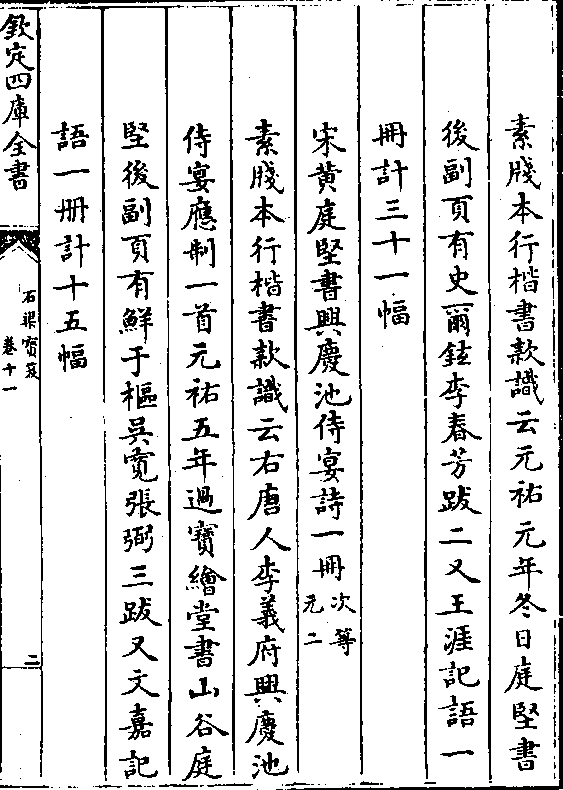 素牋本行楷書款識云元祐元年冬日庭堅書
後副頁有史爾鉉李春芳跋二又王涯記語一
冊計三十一幅
宋黃庭堅書興慶池侍宴詩一冊次等
元二
素牋本行楷書款識云右唐人李義府興慶池
侍宴應制一首元祐五年過寶繪堂書山谷庭
堅後副頁有鮮于樞吳寬張弼三跋又文嘉記
語一冊計十五幅
欽定四庫全書
石渠寶笈
卷十一
二